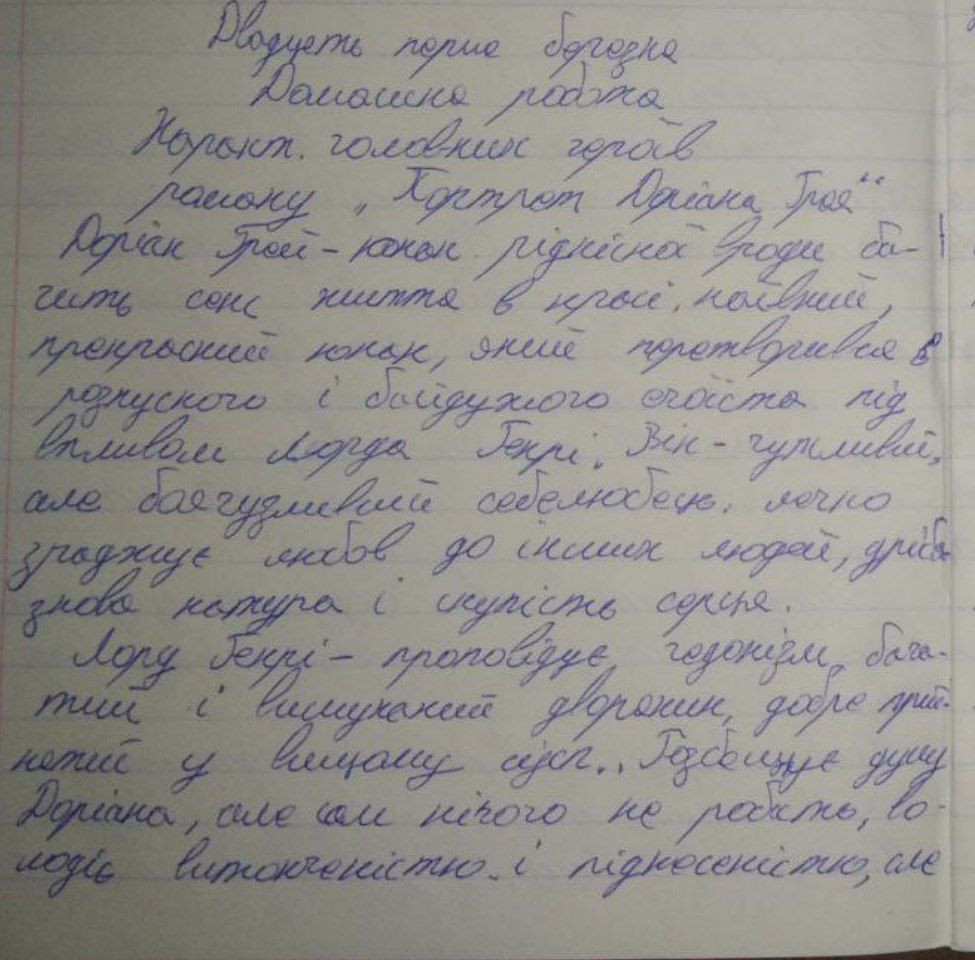 Двадцять перше березня
Домашня робота
Характ. головних героїв
роману „Портрет Доріана Грея“
Доріан Грей – юнак рідкісної вроди ба-
чить сенс життя в красі, наївний,
прекрасний юнак, який перетворився в
розпусного і байдужого егоїста під
впливом Лорда Генрі. Він – чутливий,
але боягузливий себелюбець. легко
зраджує любов до інших людей, дріб'я
знова натура і скупість серця.
Лорд Генрі – проповідує гедонізм, бага-
тий і вишуканий дворянин, добре прий-
нятий у вищому сусп.. Розбещує душу
Доріана, але сам нічого не робить, во-
лодіє витонченістю і піднесеністю, але